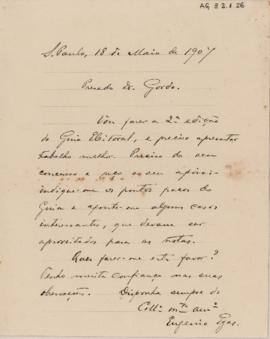 AG 3.2.1.26
S. Paulo, 18 de Maio de 1907
Prezado Dr. Gordo.
Vou fazer a 2ª edição
do Guia Eleitoral, e preciso apresentar
trabalho melhor. Preciso do seu
concurso e
indique-me os pontos fracos do
Guia e aponte-me alguns casos
interessantes, que devam ser
aproveitados para as notas.
Quer fazer-me este favor?
Tenho muita confiança nas suas
observações. Disponha sempre do
Collª mtº amº
Eugenio Egas.